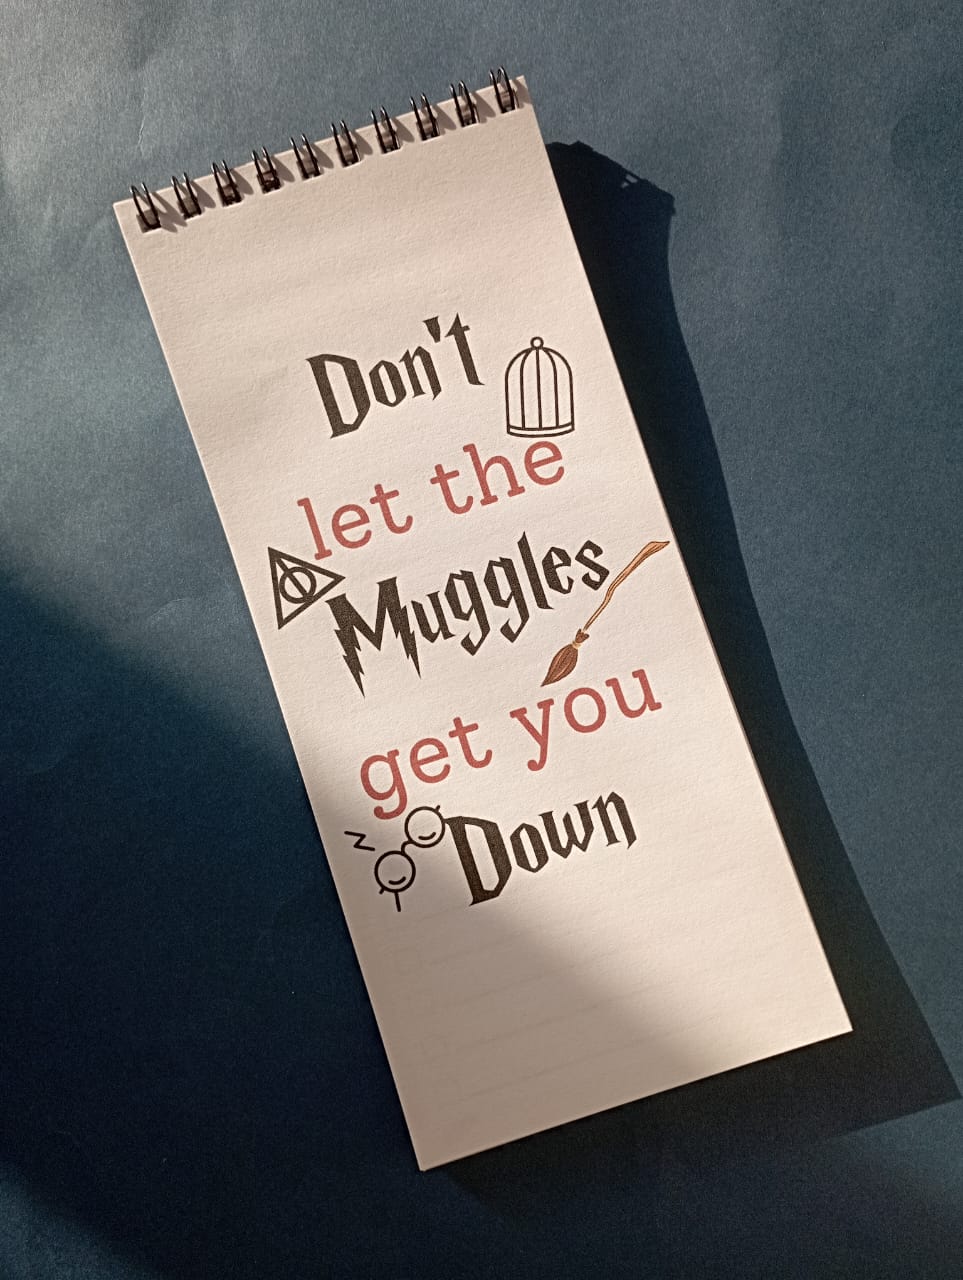 Don't
let the
Muggles
get you
Down